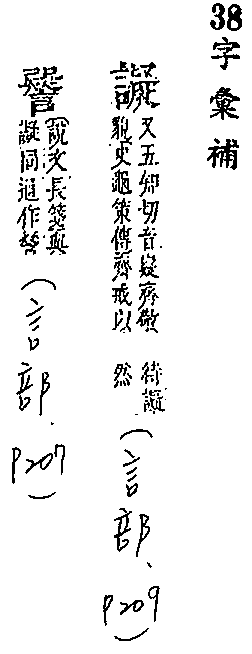 38字彙補
譺
又五切音疑齊敬
貌史龜策傳齊戒以
待譺
然
（言部、P209）
說文長箋與
譺同通作
（言部、P207）